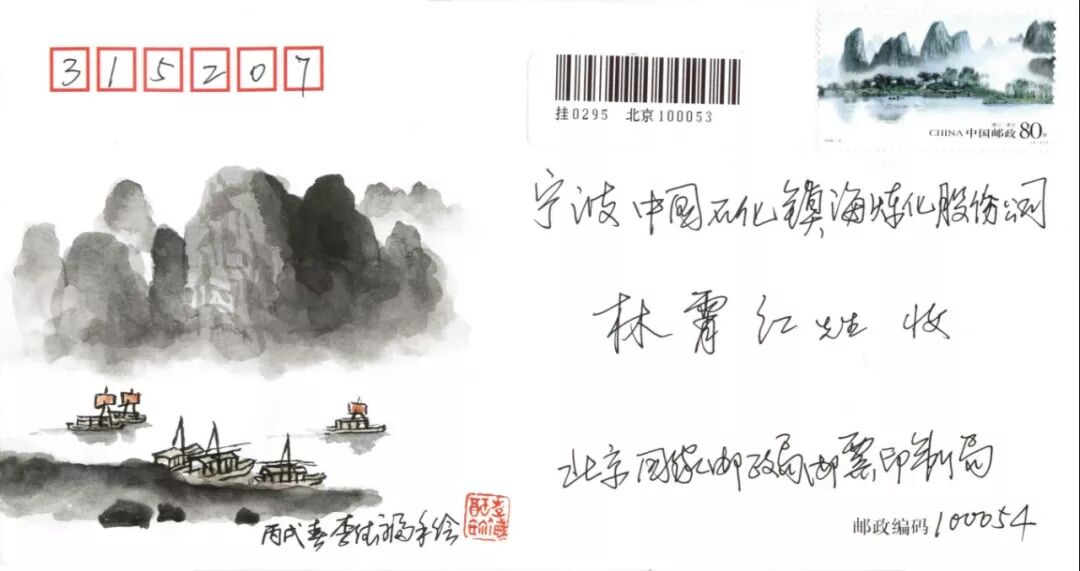 315207
挂0295 北京100053
CHINA 中国邮政 80分
宁波 中國石化鎮海炼化股份公司
林霄红 先生 收
北京国家邮政局邮票印制局
邮政编码 100054
丙戌春李德福手绘